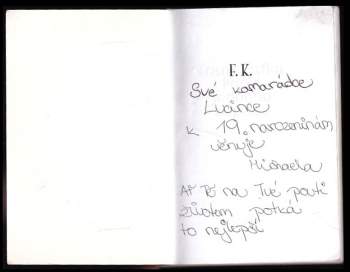 F. K.
Své kamarádce
Lucince
k 19. narozeninám
věnuje
Michaela
Ať Tě na Tvé pouti
životem potká
to nejlepší